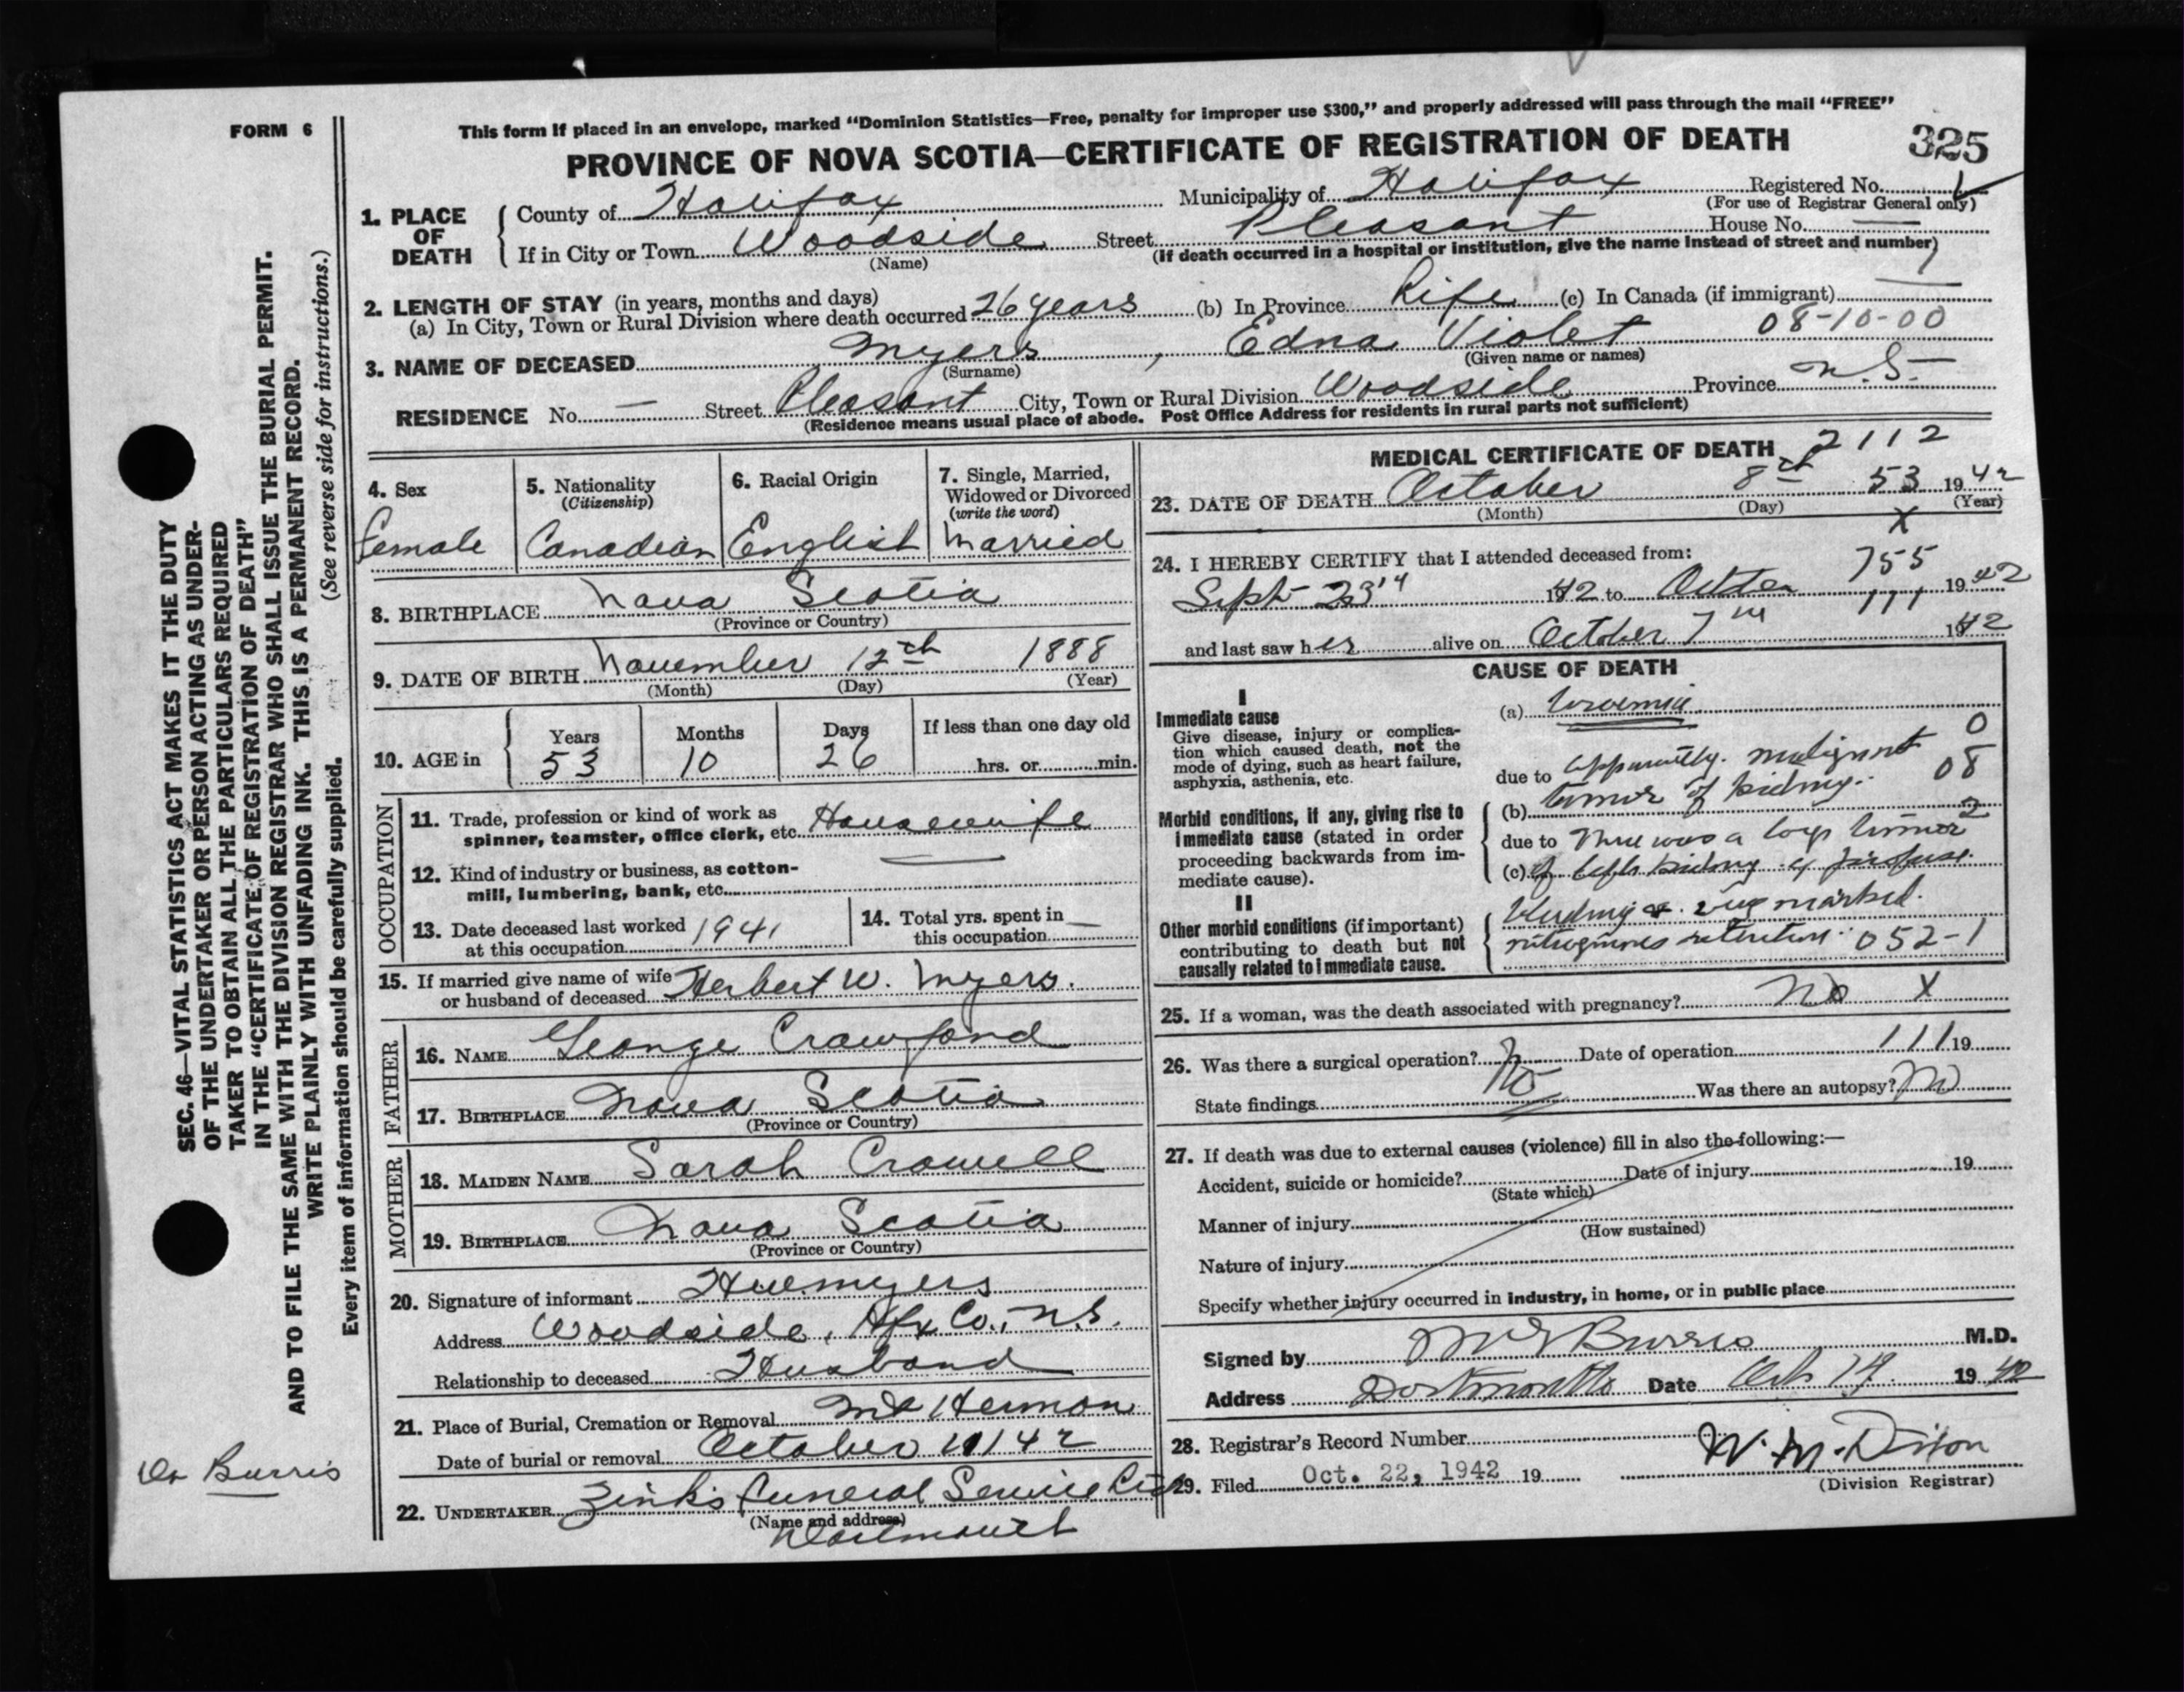 FORM 6
This form if placed in an envelope, marked “Dominion Statistics—Free, penalty for improper use $300,” and properly addressed will pass through the mail “FREE”
PROVINCE OF NOVA SCOTIA—CERTIFICATE OF REGISTRATION OF DEATH
325
1. PLACE OF DEATH
County of Halifax Municipality of Halifax Registered No.
(For use of Registrar General only)
If in City or Town Woodside Street Pleasant House No. —
(Name) (If death occurred in a hospital or institution, give the name instead of street and number)
2. LENGTH OF STAY (in years, months and days)
(a) In City, Town or Rural Division where death occurred 26 years (b) In Province Life (c) In Canada (if immigrant) —
08-10-00
3. NAME OF DECEASED Myers, Edna Violet
(Surname) (Given name or names)
RESIDENCE No. — Street Pleasant City, Town or Rural Division Woodside Province N.S.
(Residence means usual place of abode. Post Office Address for residents in rural parts not sufficient)
4. Sex
Female
5. Nationality
(Citizenship)
Canadian
6. Racial Origin
English
7. Single, Married,
Widowed or Divorced
(write the word)
Married
8. BIRTHPLACE Nova Scotia
(Province or Country)
9. DATE OF BIRTH November 12th 1888
(Month) (Day) (Year)
10. AGE in
Years Months Days If less than one day old
53 10 26 hrs. or min.
OCCUPATION
11. Trade, profession or kind of work as
spinner, teamster, office clerk, etc. Housewife
12. Kind of industry or business, as cotton-
mill, lumbering, bank, etc. —
13. Date deceased last worked
at this occupation 1941
14. Total yrs. spent in
this occupation —
15. If married give name of wife
or husband of deceased Herbert W. Myers.
FATHER
16. NAME George Crawford
17. BIRTHPLACE Nova Scotia
(Province or Country)
MOTHER
18. MAIDEN NAME Sarah Crowell
19. BIRTHPLACE Nova Scotia
(Province or Country)
20. Signature of informant H W Myers
Address Woodside, Hfx Co., N.S.
Relationship to deceased Husband
21. Place of Burial, Cremation or Removal Mt Hermon
Date of burial or removal October
22. UNDERTAKER Zink's Funeral Service Ltd
(Name and address)
Dartmouth
MEDICAL CERTIFICATE OF DEATH
2112
23. DATE OF DEATH October 8th 53 1942
(Month) (Day) (Year)
X
24. I HEREBY CERTIFY that I attended deceased from:
755
Sept 23 1942 to October 1942
111
and last saw her alive on October 7th 1942
CAUSE OF DEATH
I
Immediate cause
Give disease, injury or complica-
tion which caused death, not the
mode of dying, such as heart failure,
asphyxia, asthenia, etc.
(a) Uraemia
0
due to apparently malignant
08
Morbid conditions, if any, giving rise to
immediate cause (stated in order
proceeding backwards from im-
mediate cause).
(b) tumor of kidney.
2
due to There was a large tumor
(c) of left kidney & profuse
II
Other morbid conditions (if important)
contributing to death but not
causally related to immediate cause.
bleeding & very marked
nitrogenous retention 052-1
25. If a woman, was the death associated with pregnancy? No X
26. Was there a surgical operation? No Date of operation 111 19
State findings No Was there an autopsy? No
27. If death was due to external causes (violence) fill in also the following:—
Accident, suicide or homicide? Date of injury 19
(State which)
Manner of injury
(How sustained)
Nature of injury
Specify whether injury occurred in industry, in home, or in public place
Signed by Burris M.D.
Address Dartmouth Date Oct 19
28. Registrar's Record Number
29. Filed Oct. 22, 1942 19 W. M. Dixon
(Division Registrar)
SEC. 46—VITAL STATISTICS ACT MAKES IT THE DUTY
OF THE UNDERTAKER OR PERSON ACTING AS UNDER-
TAKER TO OBTAIN ALL THE PARTICULARS REQUIRED
IN THE “CERTIFICATE OF REGISTRATION OF DEATH”
AND TO FILE THE SAME WITH THE DIVISION REGISTRAR WHO SHALL ISSUE THE BURIAL PERMIT.
WRITE PLAINLY WITH UNFADING INK. THIS IS A PERMANENT RECORD.
Every item of information should be carefully supplied. (See reverse side for instructions.)
Dr Burris